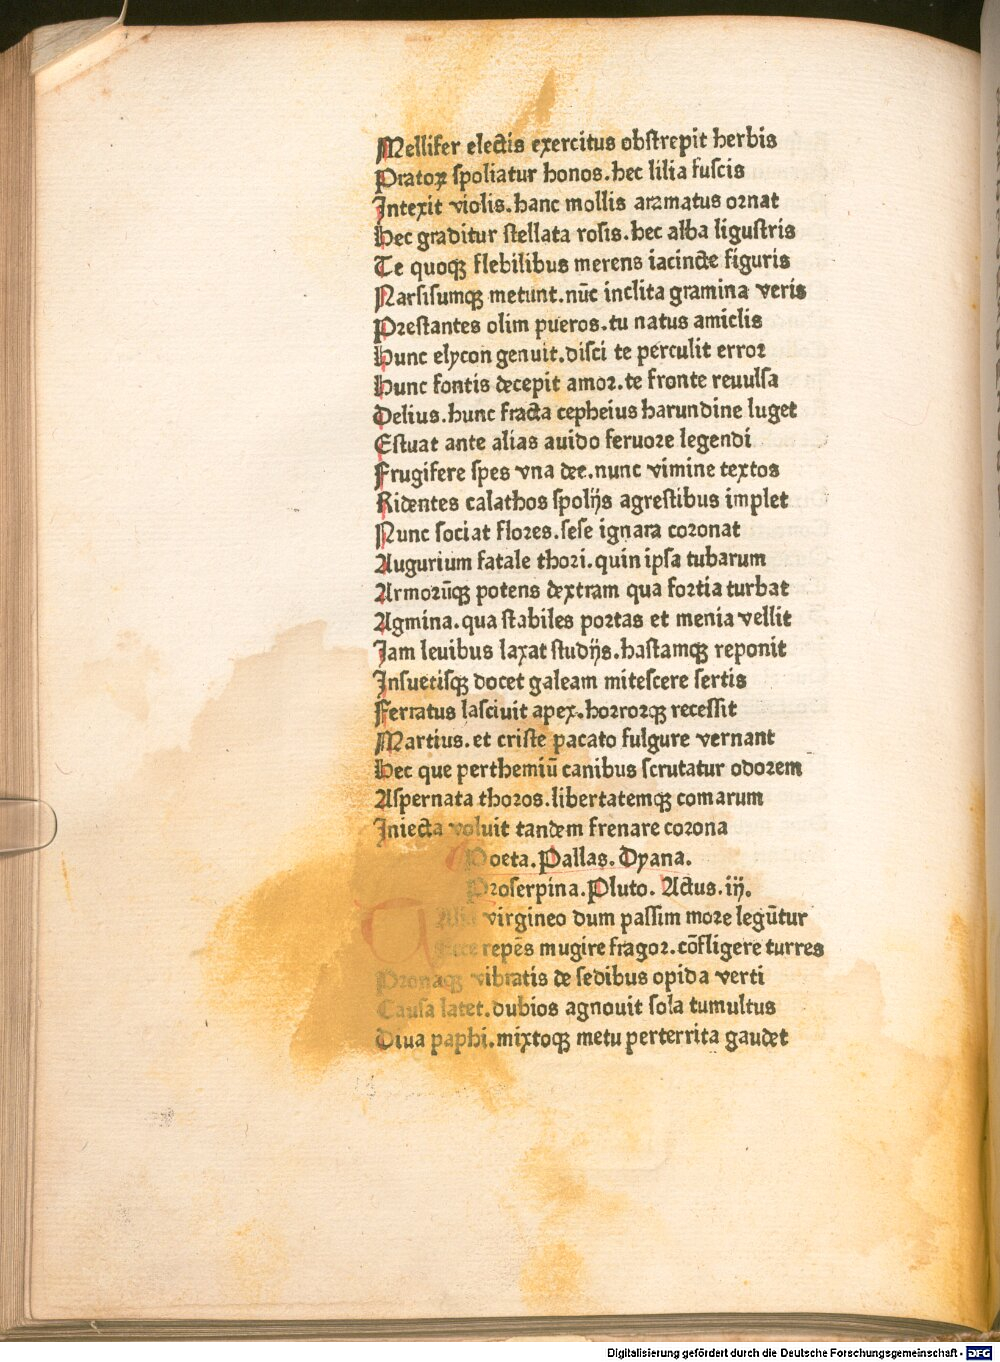 Mellifer electis exercitus obstrepit herbis
Pratoꝝ spoliatur honos.hec lilia fuscis
Intexit violis.hanc mollis aramatus ornat
Hec graditur stellata rosis.hec alba ligustris
Te quoqꝫ flebilibus merens iacincte figuris
Narsisumqꝫ metunt.nūc inclita gramina veris
Prestantes olim pueros.tu natus amiclis
Hunc elycon genuit.disci te perculit error
Hunc fontis decepit amor.te fronte reuulsa
Delius.hunc fracta cepheius harundine luget
Estuat ante alias auido feruore legendi
Frugifere spes vna dee.nunc vimine textos
Ridentes calathos spolijs agrestibus implet
Nunc sociat flores.sese ignara coronat
Augurium fatale thori.quin ipsa tubarum
Armorūqꝫ potens dextram qua fortia turbat
Agmina.qua stabiles portas et menia vellit
Jam leuibus laxat studijs.hastamqꝫ reponit
Insuetisqꝫ docet galeam mitescere sertis
Ferratus lasciuit apex.horrorqꝫ recessit
Martius.et criste pacato fulgure vernant
Hec que perthemiū canibus scrutatur odorem
Aspernata thoros.libertatemqꝫ comarum
Iniecta voluit tandem frenare corona
Poeta.Pallas.Dyana.
Proserpina.Pluto. Actus.iij.
virgineo dum passim more legūtur
repēs mugire fragor.cōfligere turres
Pronaqꝫ vibratis de sedibus opida verti
Causa latet.dubios agnouit sola tumultus
Diua paphi.mixtoqꝫ metu perterrita gaudet
Digitalisierung gefördert durch die Deutsche Forschungsgemeinschaft - DFG